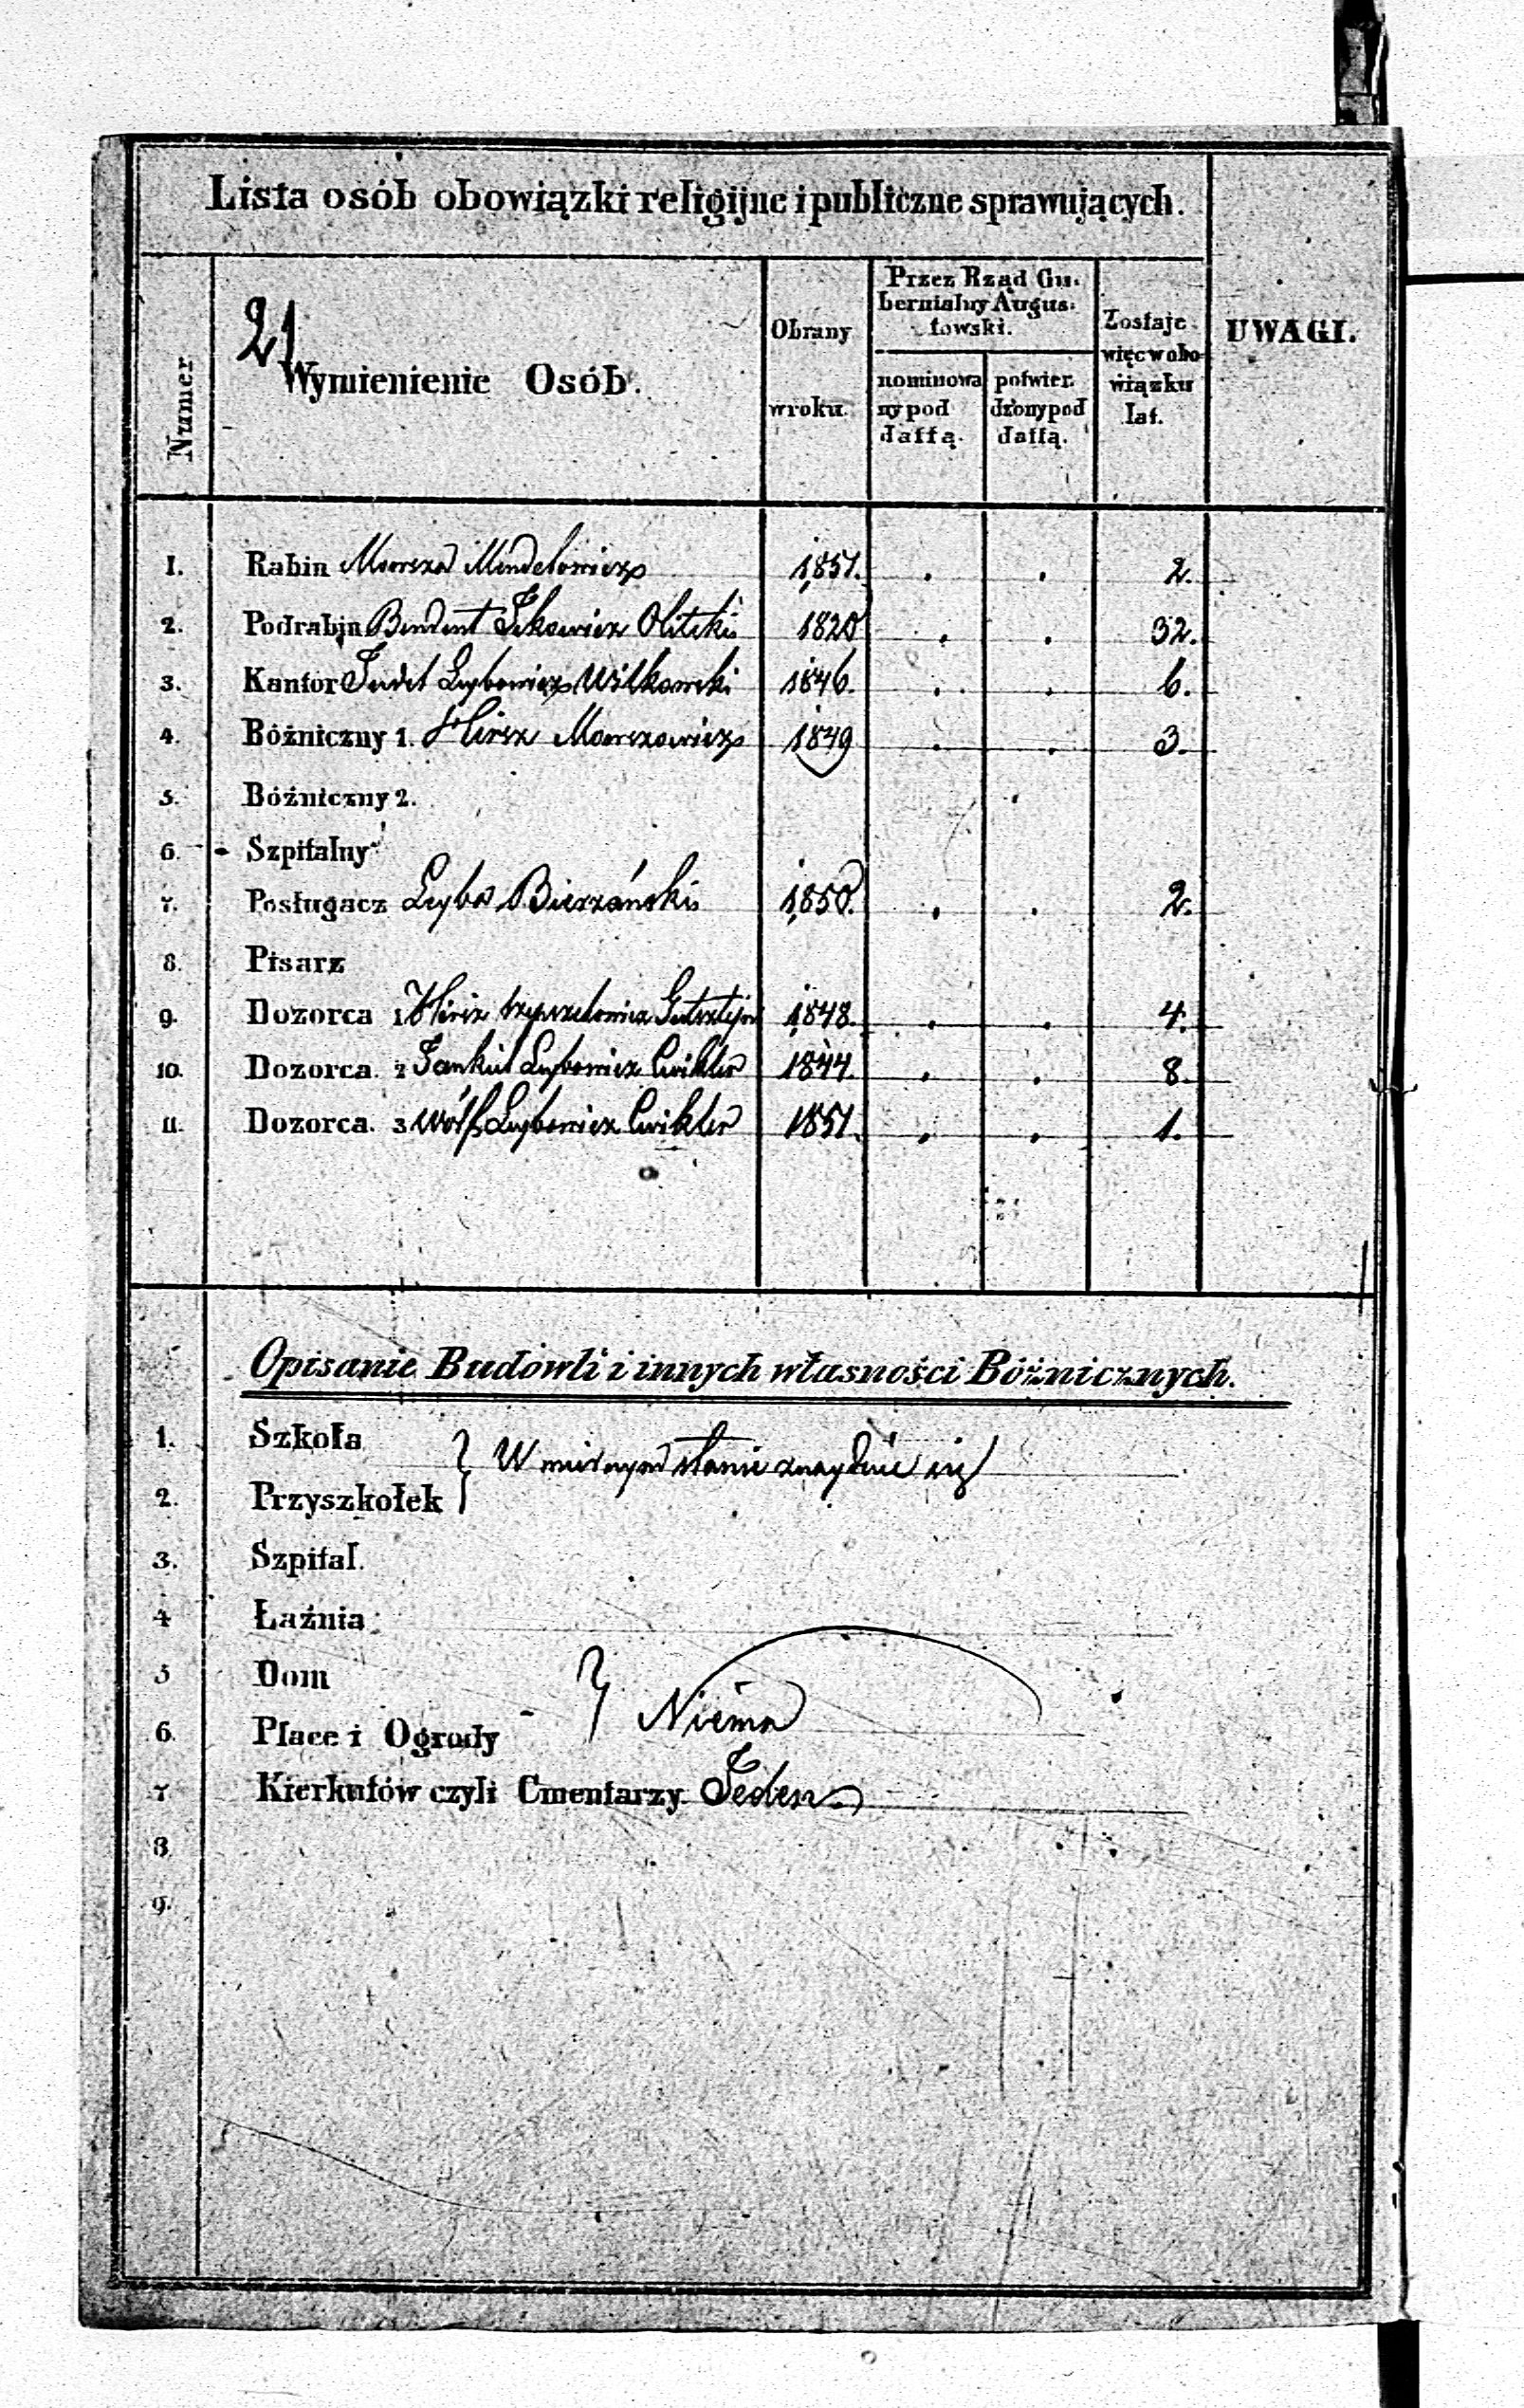 Lista osób obowiązki religijne i publiczne sprawujących.
21
Numer
Wymienienie Osób.
Obrany w roku.
Przez Rząd Gubernialny Augustowski.
nominowany pod dattą.
potwierdzony pod dattą.
Zostaje więc w obowiązku lat.
UWAGI.
1. Rabin Mendelowicz 1851. 2.
2. Podrabin Olitzki 1820 32.
3. Kantor Judel Leybowicz Wilkowski 1846. 6.
4. Bóżniczny 1. Hirsz Morszowicz 1849 3.
5. Bóżniczny 2.
6. Szpitalny
7. Posługacz Leyba Bierzański 1850. 2.
8. Pisarz
9. Dozorca 1 Hirsz 1848. 4.
10. Dozorca. 2 Jankiel Leybowicz Cwikler 1844. 8.
11. Dozorca. 3 Wolf Leybowicz Cwikler 1851. 1.
Opisanie Budowli i innych własności Bóżnicznych.
1. Szkoła
W miernym stanie znayduie się
2. Przyszkołek
3. Szpital.
4 Łaźnia
5 Dom
6. Place i Ogrody
Niema
7 Kierkutów czyli Cmentarzy Jeden
8
9.